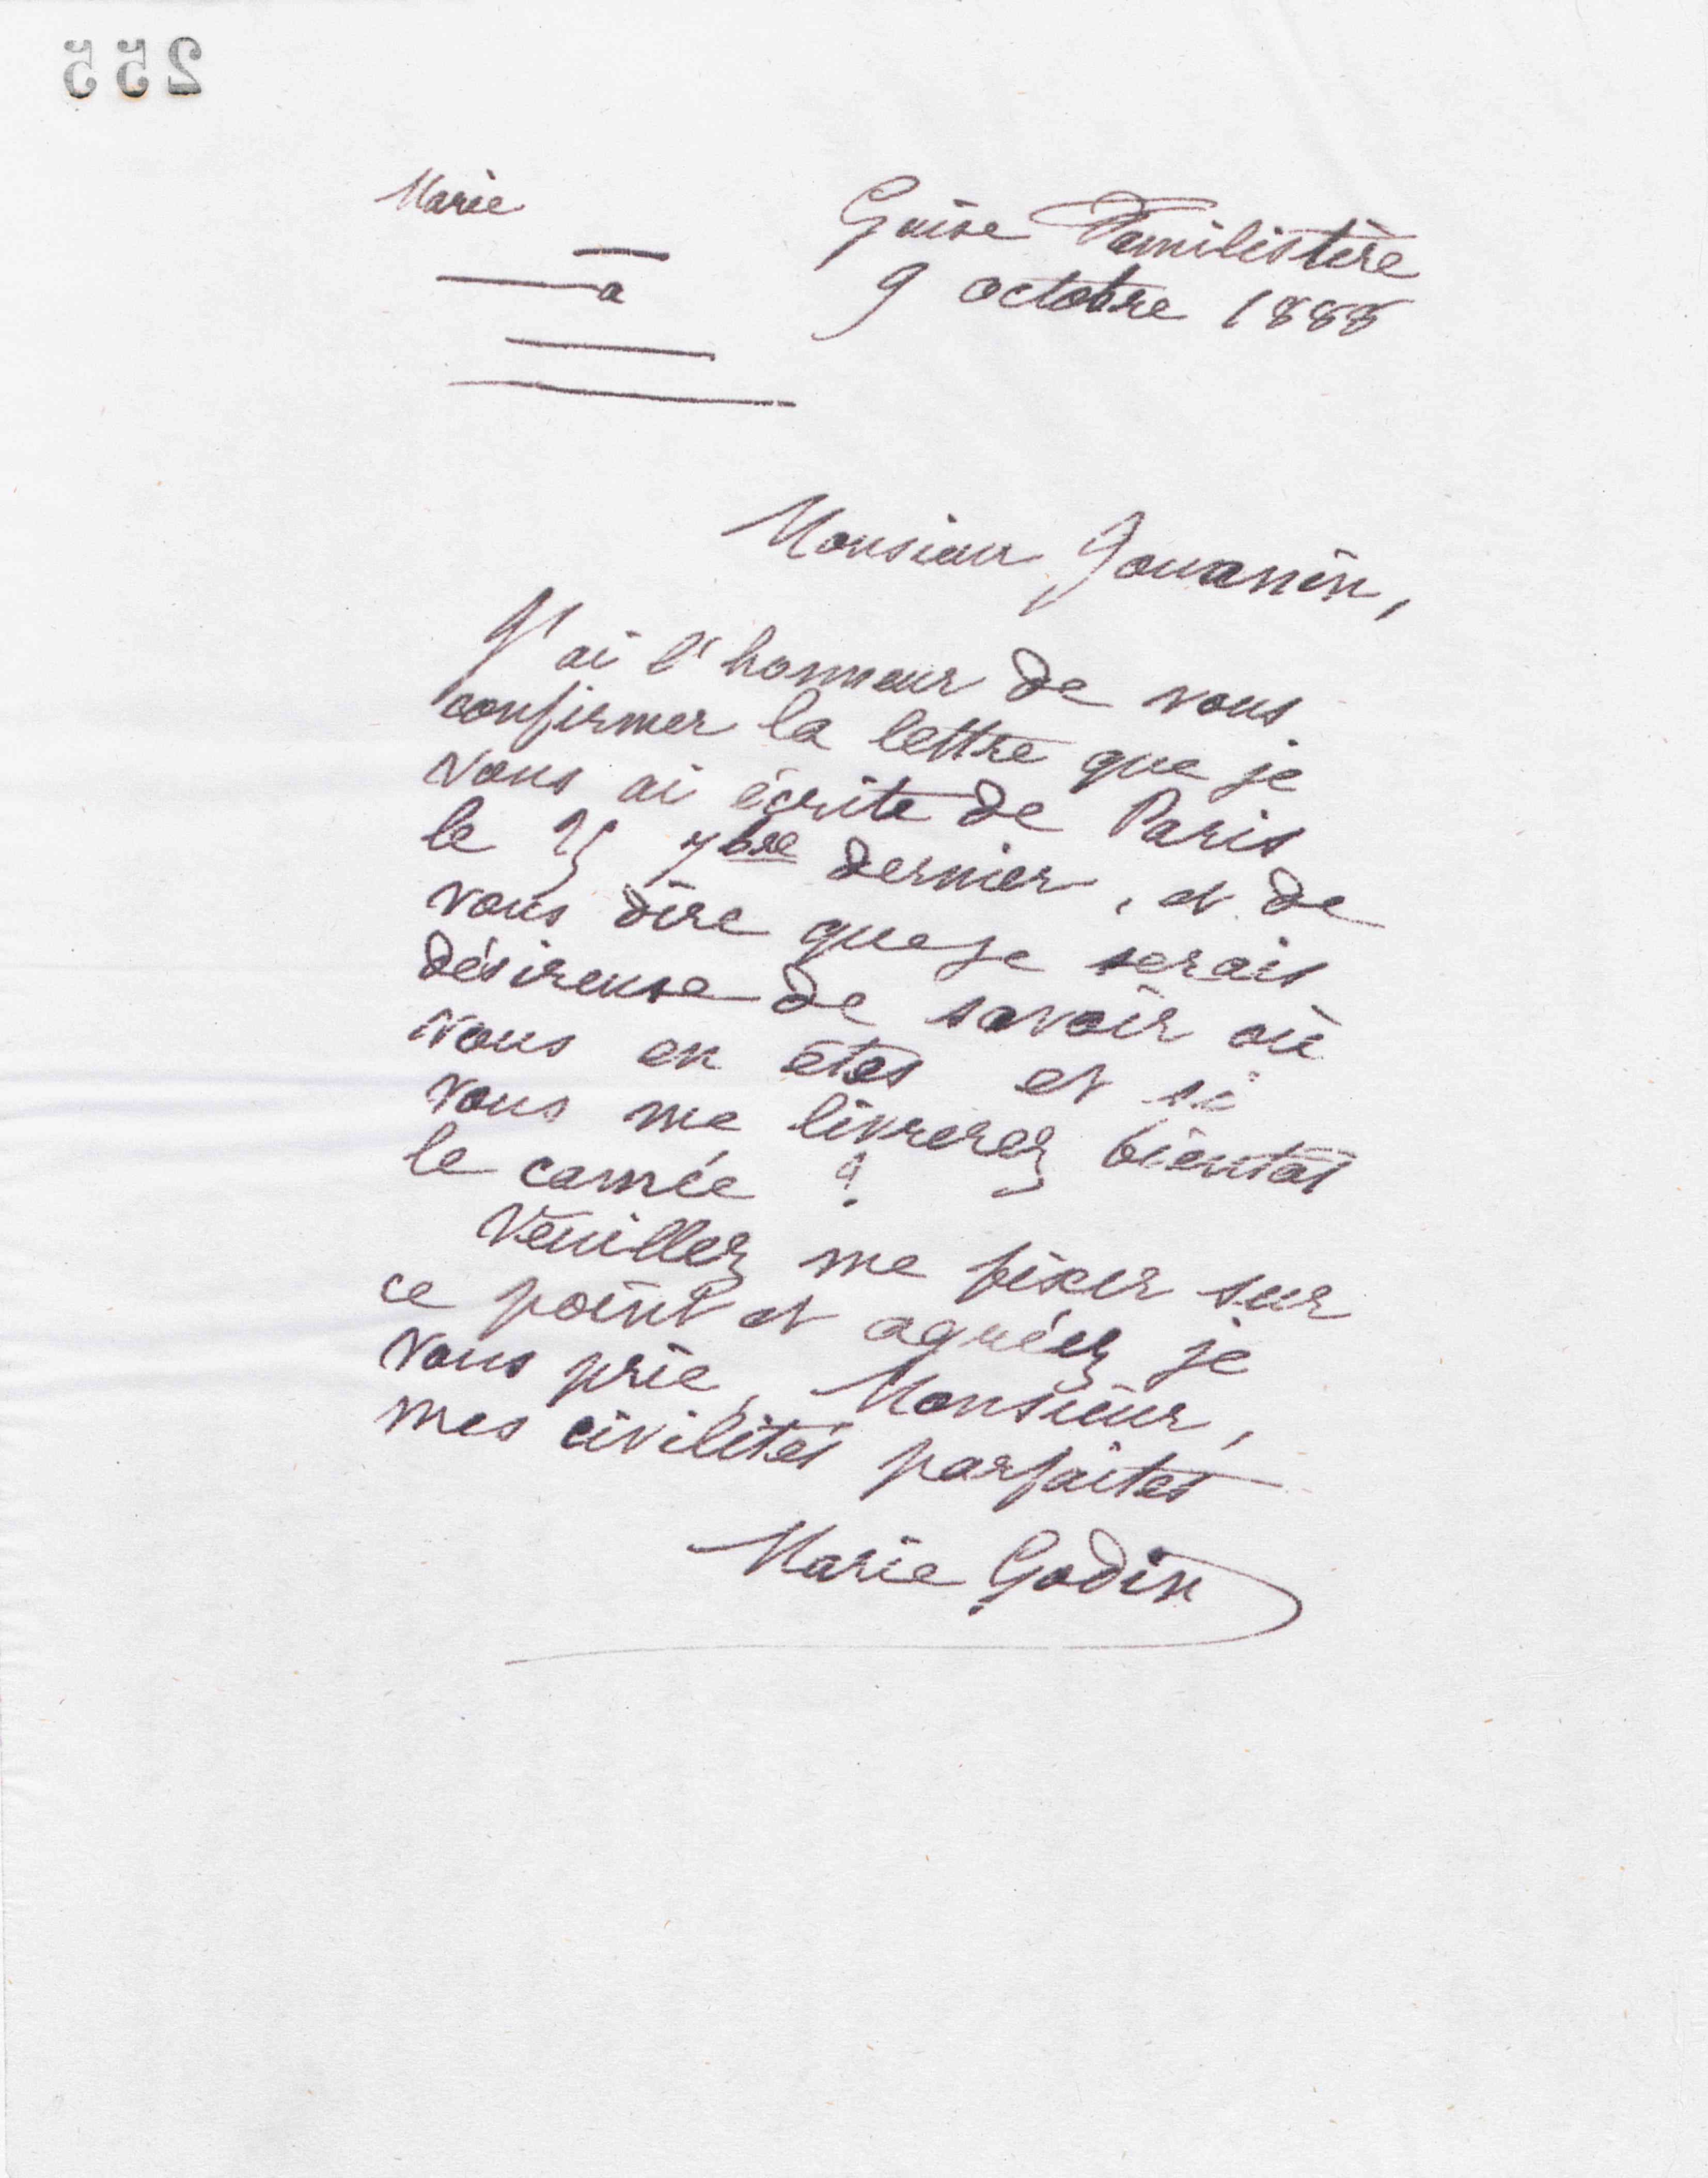 255
Marie
a
Guise Familistère
9 octobre 1888
Monsieur Jouanin,
J'ai l'honneur de vous
confirmer la lettre que je
vous ai écrite de Paris
le 25 7bre dernier, et de
vous dire que je serais
désireuse de savoir où
vous en êtes et si
vous me livrerez bientôt
le camée ?
Veuillez me fixer sur
ce point et agréez je
vous prie, Monsieur,
mes civilités parfaites
Marie Godin